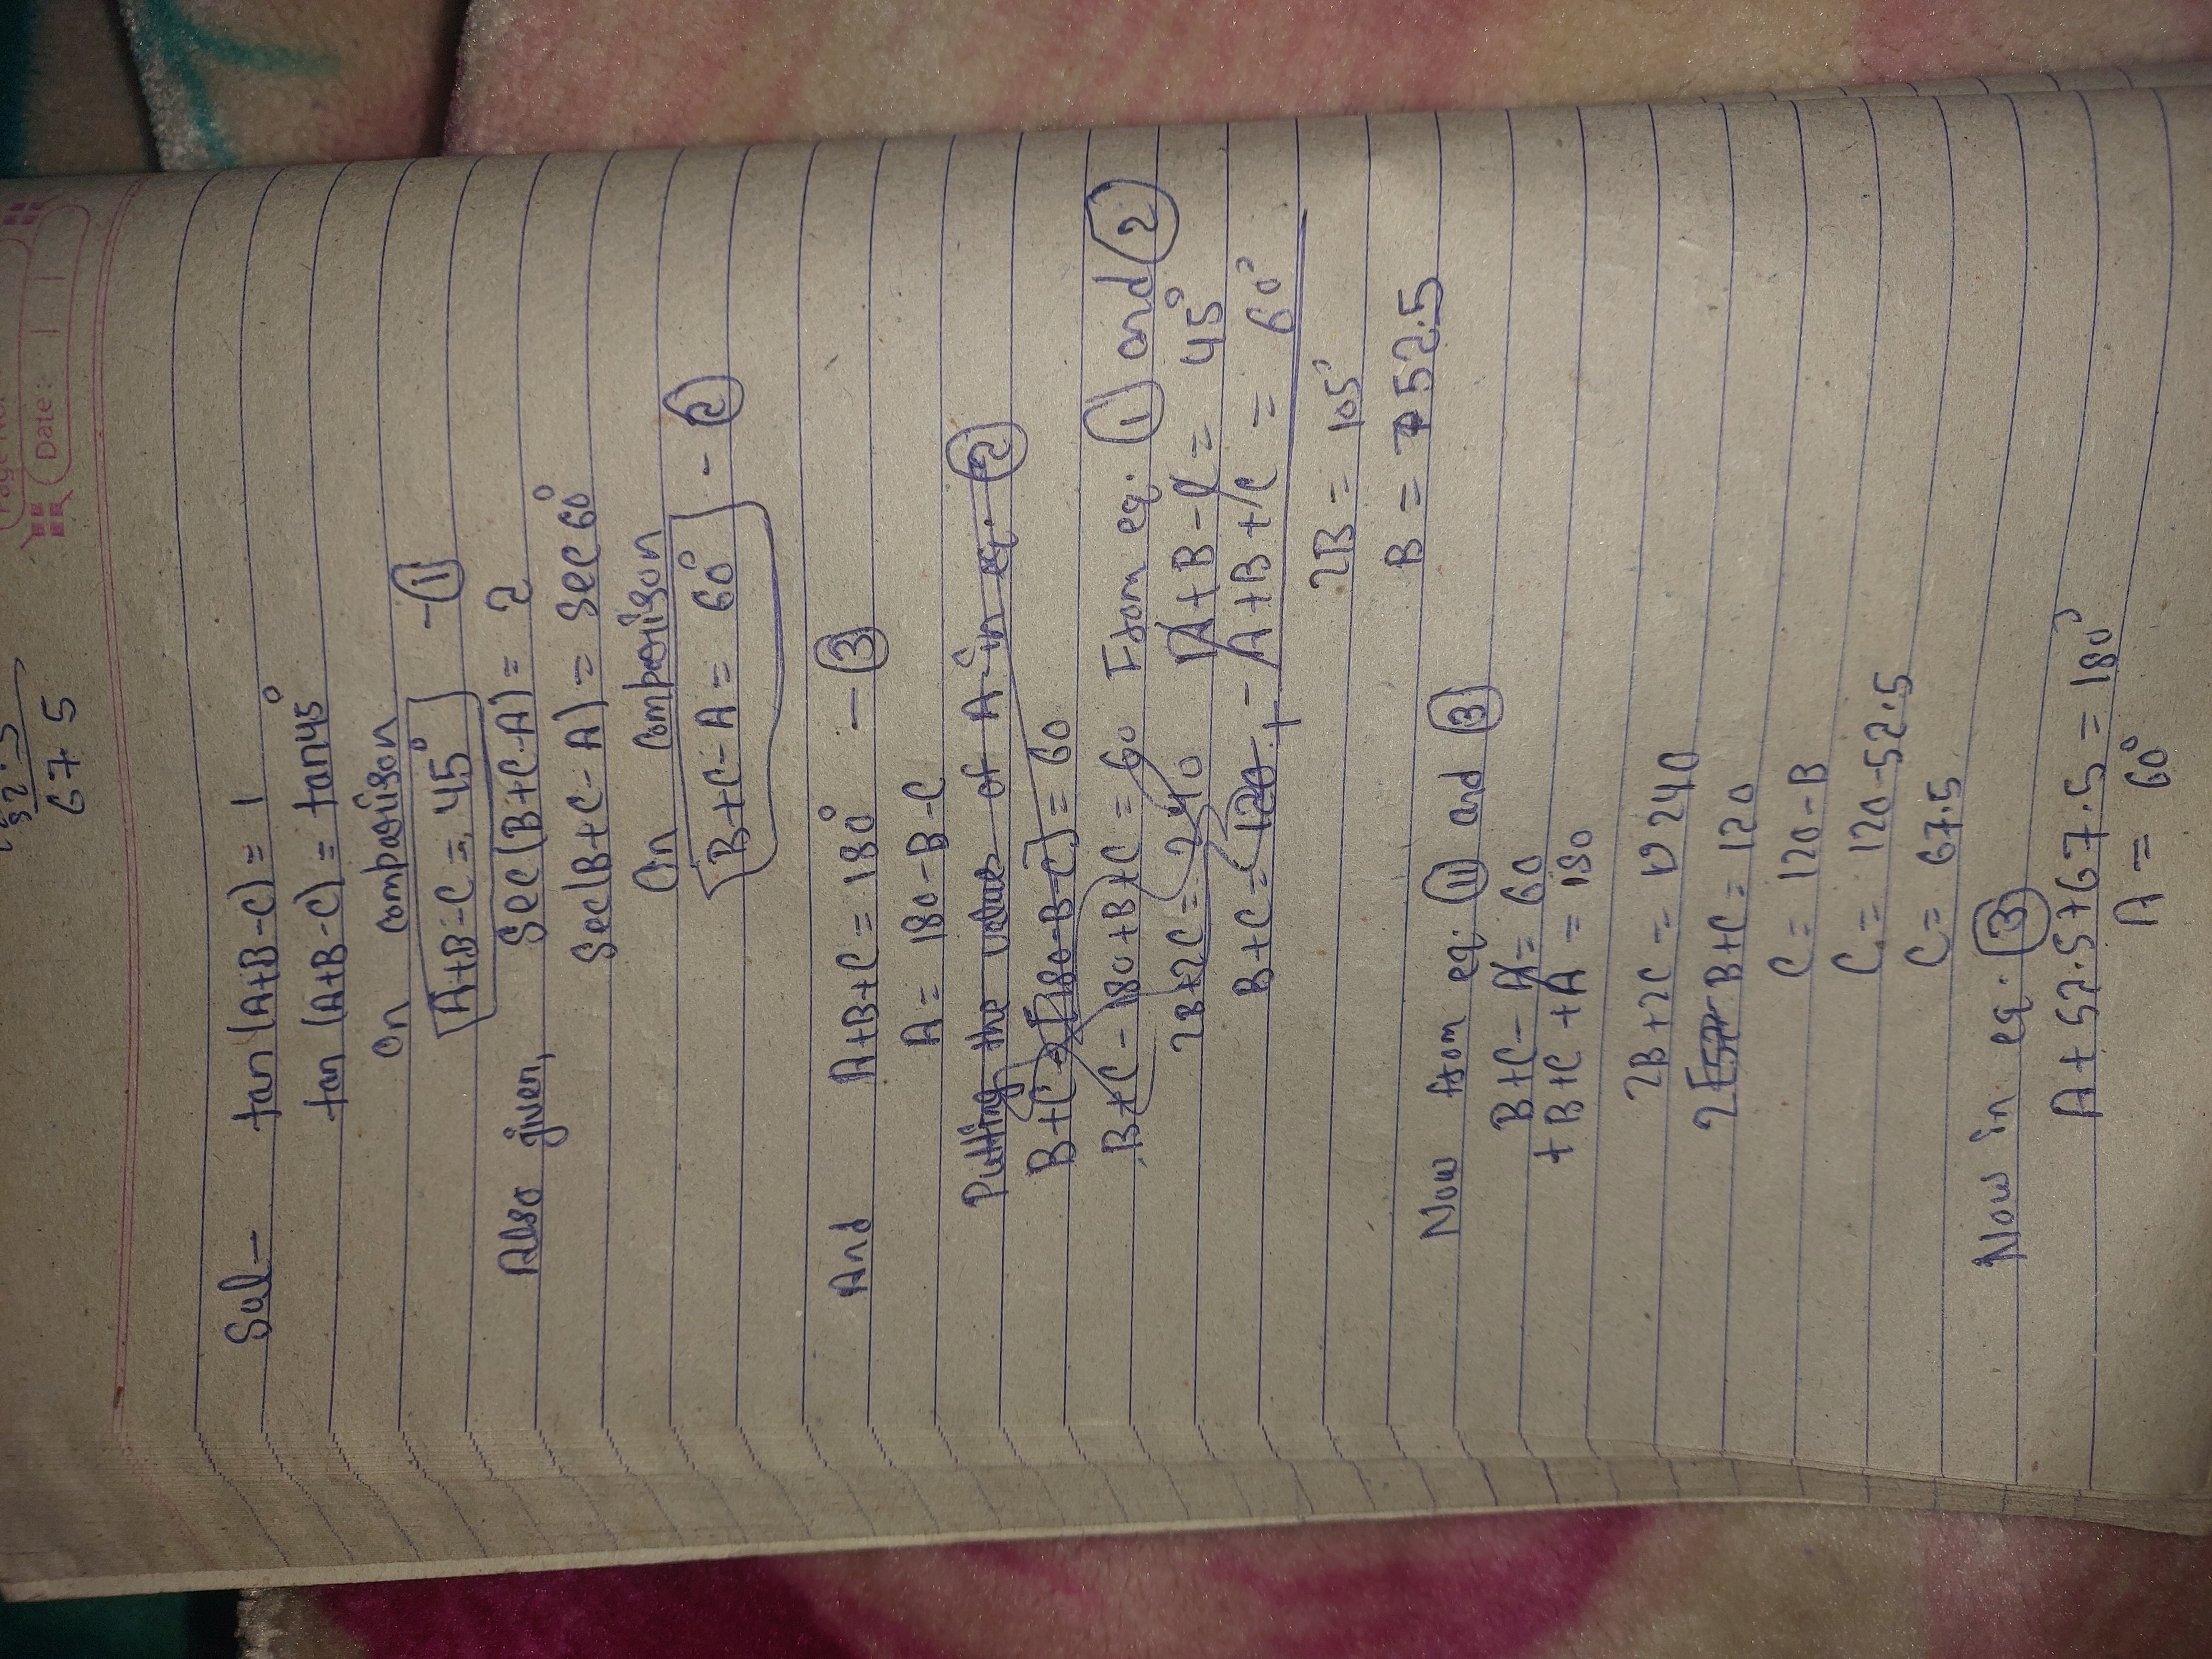 Date:-
52.5
67 5
Sol- tan (A+B-C) = 1
tan (A+B-C) = tan45°
On comparison
A+B-C = 45° - 1
Also given, Sec (B+C-A) = 2
Sec(B+C-A) = Sec 60°
On comparison
B+C-A = 60° - 2
And A+B+C = 180° - 3
A = 180-B-C
Putting the value of A in eq. 2
B+C-[180-B-C] = 60
B+C-180+B+C = 60
2B+2C = 240
B+C = 120
From eq. 1 and 2
A+B-C = 45°
-A+B+C = 60°
2B = 105°
B = 52.5
Now from eq. 11 and 3
B+C-A = 60
+B+C+A = 180
2B+2C = 240
B+C = 120
C = 120-B
C = 120-52.5
C = 67.5
Now in eq. 3
A+52.5+67.5 = 180°
A = 60°